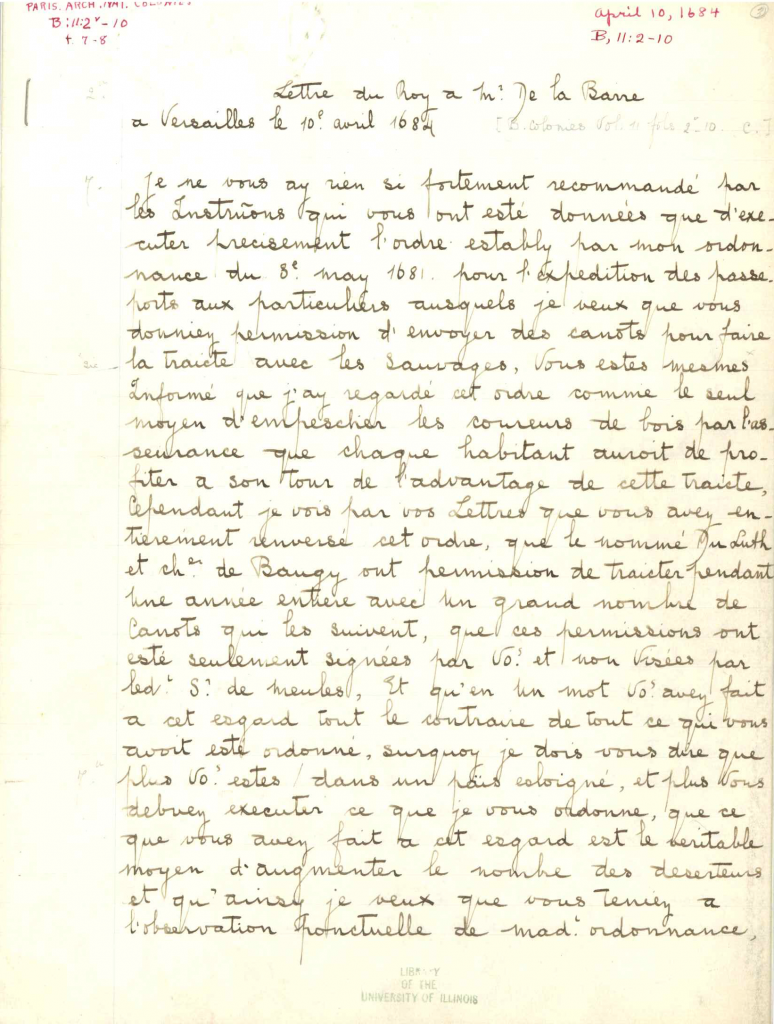 PARIS. ARCH. NAT. COLONIES
B:11:2v-10
f. 7-8
April 10, 1684
B, 11:2-10
Lettre du Roy a Mr. De la Barre
a Versailles le 10e. avril 1684
[B. colonies Vol. 11 fols 2v-10. C.]
Je ne vous ay rien si fortement recommandé par
les Instrũons qui vous ont esté données que d'exe-
cuter precisement l'ordre estably par mon ordon-
nance du 8e. may 1681. pour l'expedition des passe-
ports aux particuliers ausquels je veux que vous
donniez permission d'envoyer des canots pour faire
la traicte avec les Sauvages, Vous estes mesmes
Informé que j'ay regardé cet ordre comme le seul
moyen d'empescher les coureurs de bois par l'as-
seurance que chaque habitant auroit de pro-
fiter a son tour de l'advantage de cette traicte,
Cependant je vois par vos Lettres que vous avez en-
tierement renversé cet ordre, que le nommé Du Luth
et cher. de Baugy ont permission de traicter pendant
Une année entiere avec Un grand nombre de
Canots qui les suivent, que ces permissions ont
esté seulement signées par Vos. et non Visées par
led. Sr. de Meules, Et qu'en Un mot Vos. avez fait
a cet esgard tout le contraire de tout ce qui vous
avoit esté ordonné, surquoy je dois vous dire que
plus Vos. estes / dans un païs esloigné, et plus Vous
debvez executer ce que je vous ordonne, que ce
que vous avez fait a cet esgard est le veritable
moyen d'augmenter le nombre des deserteurs
et qu'ainsy je veux que vous teniez a
l'observation ponctuelle de mad. ordonnance,
LIBRARY
OF THE
UNIVERSITY OF ILLINOIS